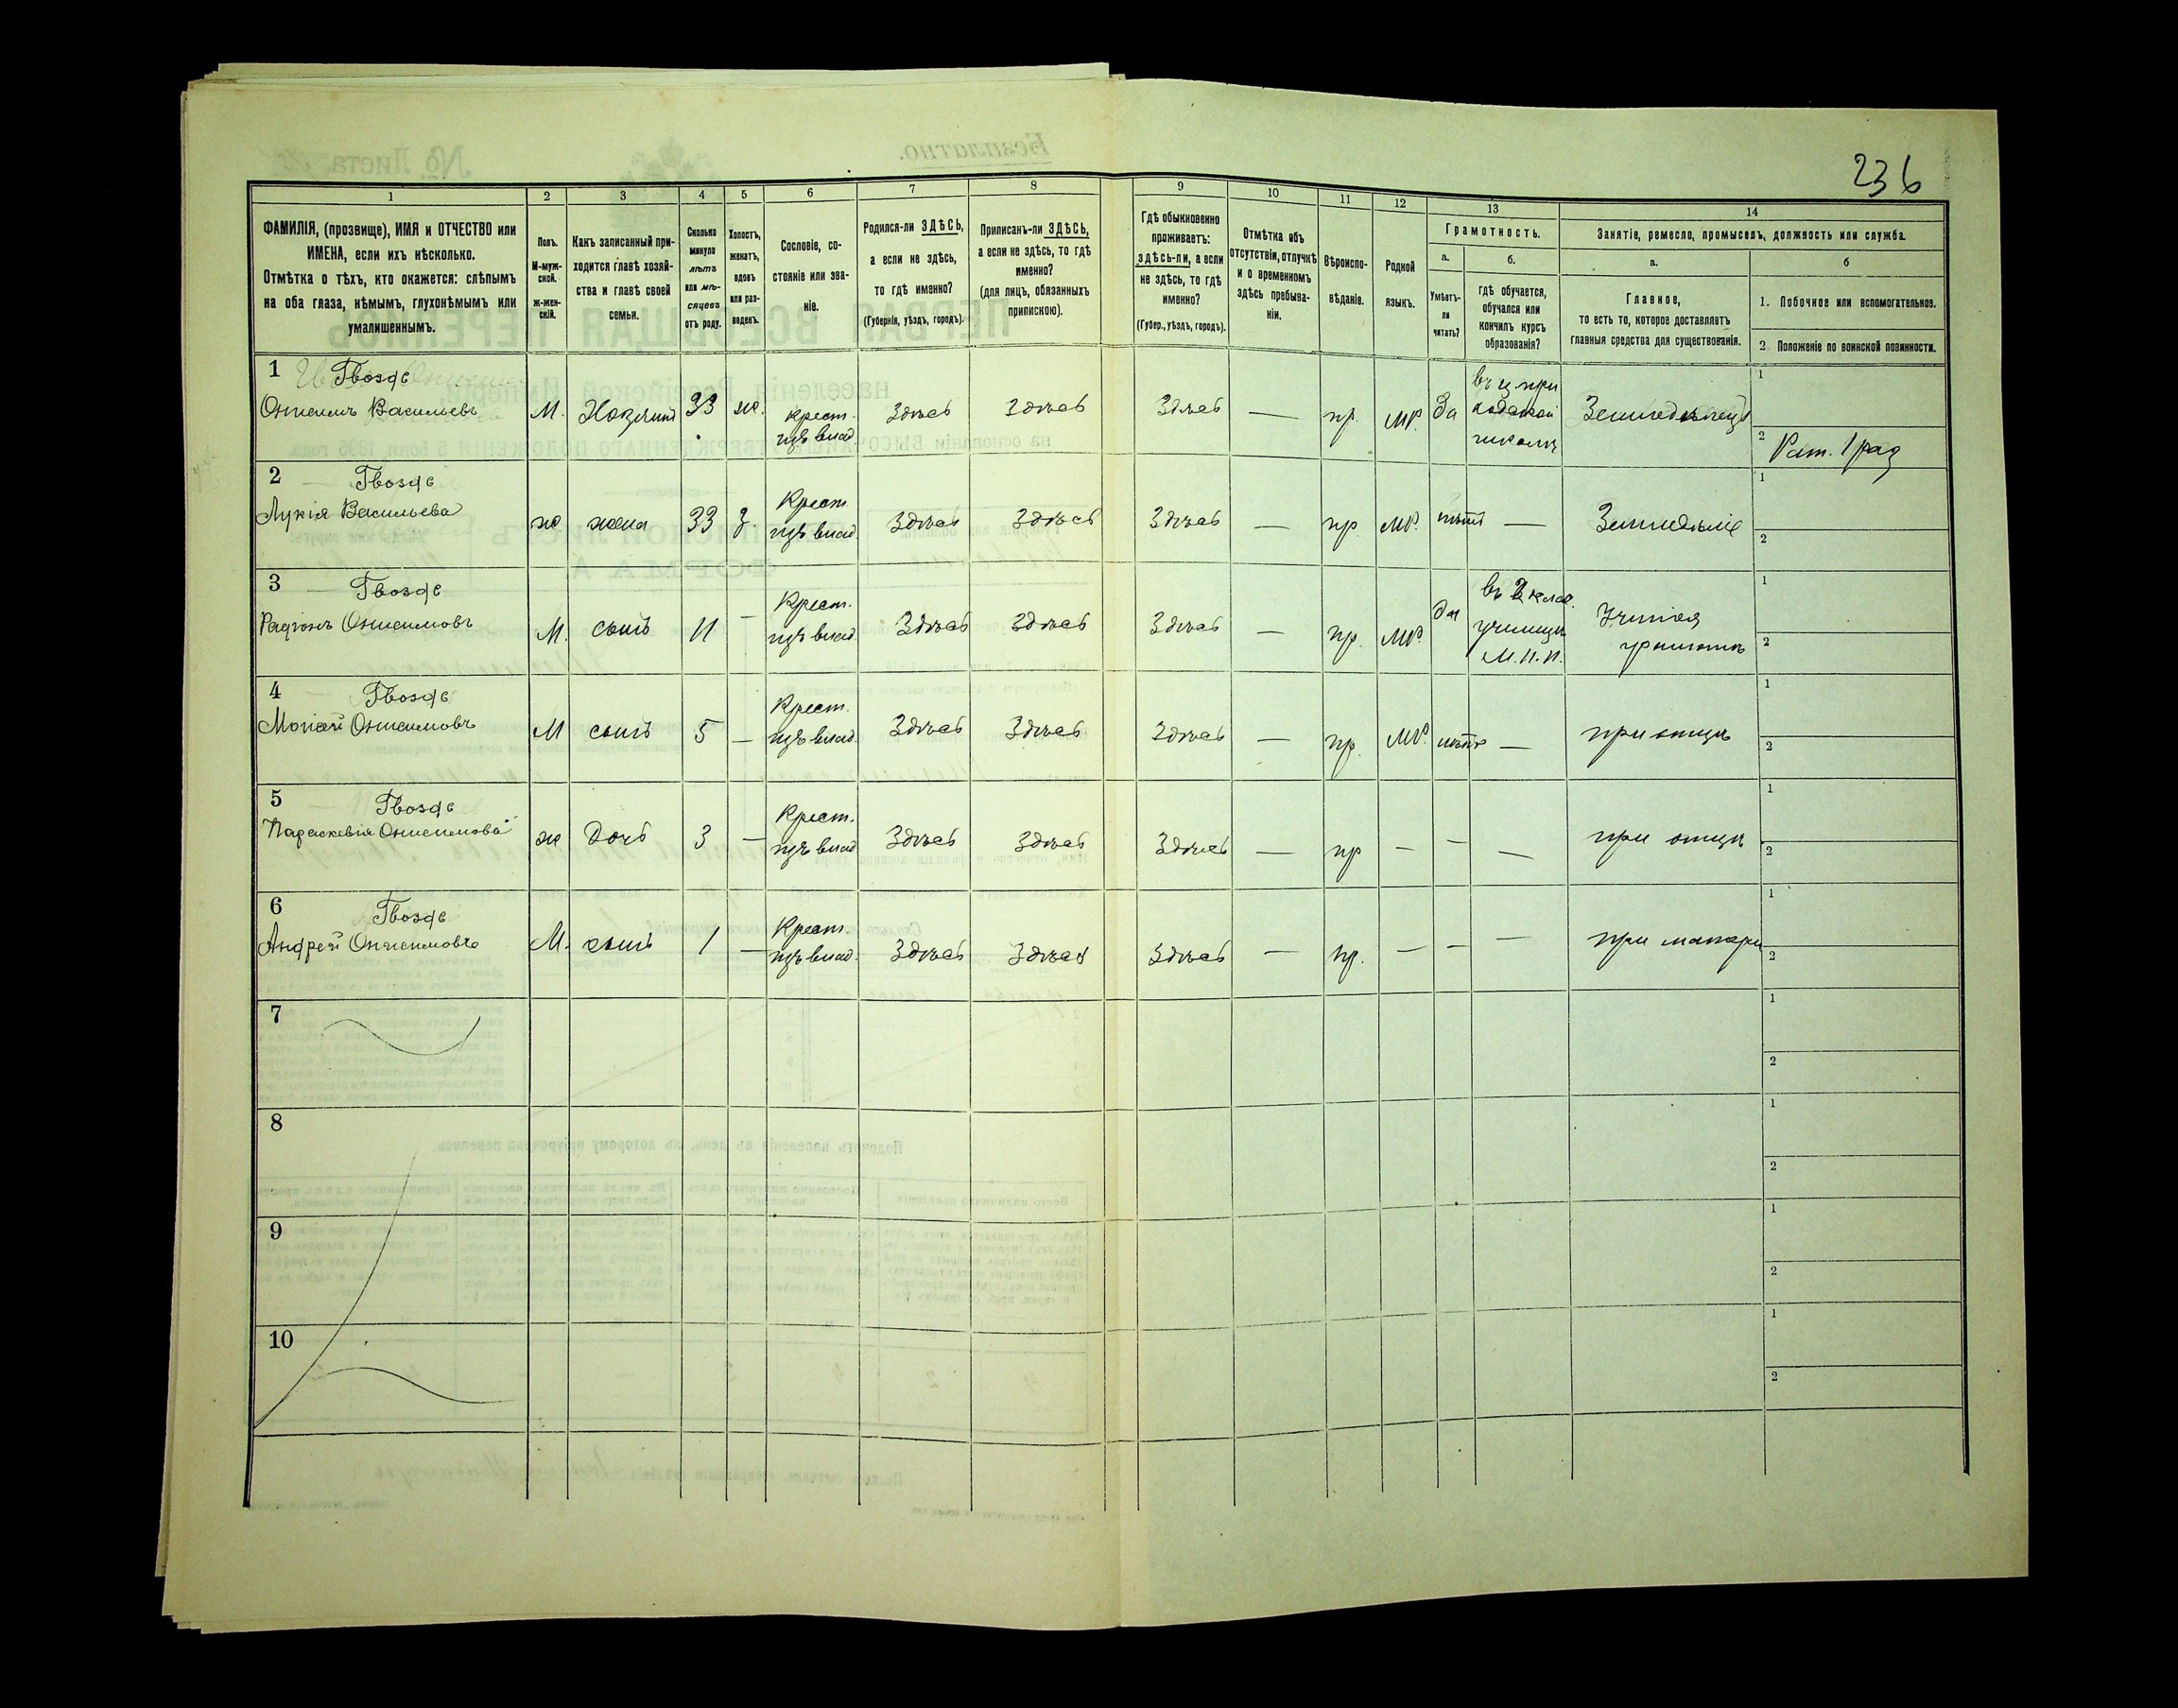 236
1 2 3 4 5 6 7 8 9 10 11 12 13 14
ФАМИЛІЯ, (прозвище), ИМЯ и ОТЧЕСТВО или
ИМЕНА, если ихъ нѣсколько.
Отмѣтка о тѣхъ, кто окажется: слѣпымъ
на оба глаза, нѣмымъ, глухонѣмымъ или
умалишеннымъ.
Полъ.
М-муж-
ской.
ж-жен-
скій.
Какъ записанный при-
ходится главѣ хозяй-
ства и главѣ своей
семьи.
Сколько
минуло
лѣтъ
или мѣ-
сяцевъ
отъ роду.
Холостъ,
женатъ,
вдовъ
или раз-
веденъ.
Сословіе, со-
стояніе или зва-
ніе.
Родился-ли ЗДѢСЬ,
а если не здѣсь,
то гдѣ именно?
(Губернія, уѣздъ, городъ).
Приписанъ-ли ЗДѢСЬ,
а если не здѣсь, то гдѣ
именно?
(для лицъ, обязанныхъ
припискою).
Гдѣ обыкновенно
проживаетъ:
здѣсь-ли, а если
не здѣсь, то гдѣ
именно?
(Губер., уѣздъ, городъ).
Отмѣтка объ
отсутствіи, отлучкѣ
и о временномъ
здѣсь пребыва-
ніи.
Вѣроиспо-
вѣданіе.
Родной
языкъ.
Грамотность.
а.
Умѣетъ-
ли
читать?
б.
гдѣ обучается,
обучался или
кончилъ курсъ
образованія?
Занятіе, ремесло, промыселъ, должность или служба.
а.
Главное,
то есть то, которое доставляетъ
главныя средства для существованія.
б
1. Побочное или вспомогательное.
2. Положеніе по воинской повинности.
1 Гвоздь
Онисимъ Васильевъ М. Хозяинъ 33 ж. крест. изъ влад. Здѣсь Здѣсь Здѣсь — пр. МР. Да въ ц. при
ходской
школѣ Земледѣлецъ 1
2 Рат. 1 раз
2 Гвоздь
Лукія Васильева ж жена 33 з. Крест. изъ влад. Здѣсь Здѣсь Здѣсь — пр. МР. нѣтъ — Земледѣліе 1
2
3 Гвоздь
Радіонъ Онисимовъ М. сынъ 11 — Крест. изъ влад. Здѣсь Здѣсь Здѣсь — пр. МР. да въ 2 клас.
училищѣ
М. Н. П. Учится
грамотѣ 1
2
4 Гвоздь
Онисимовъ М сынъ 5 — Крест. изъ влад. Здѣсь Здѣсь Здѣсь — пр. МР. нѣтъ — при отцѣ 1
2
5 Гвоздь
Параскевія Онисимова ж Дочь 3 — Крест. изъ влад Здѣсь Здѣсь Здѣсь — пр — — — при отцѣ 1
2
6 Гвоздь
Андрей Онисимовъ М. сынъ 1 — Крест. изъ влад. Здѣсь Здѣсь Здѣсь — пр. — — — при матери 1
2
7 1
2
8 1
2
9 1
2
10 1
2